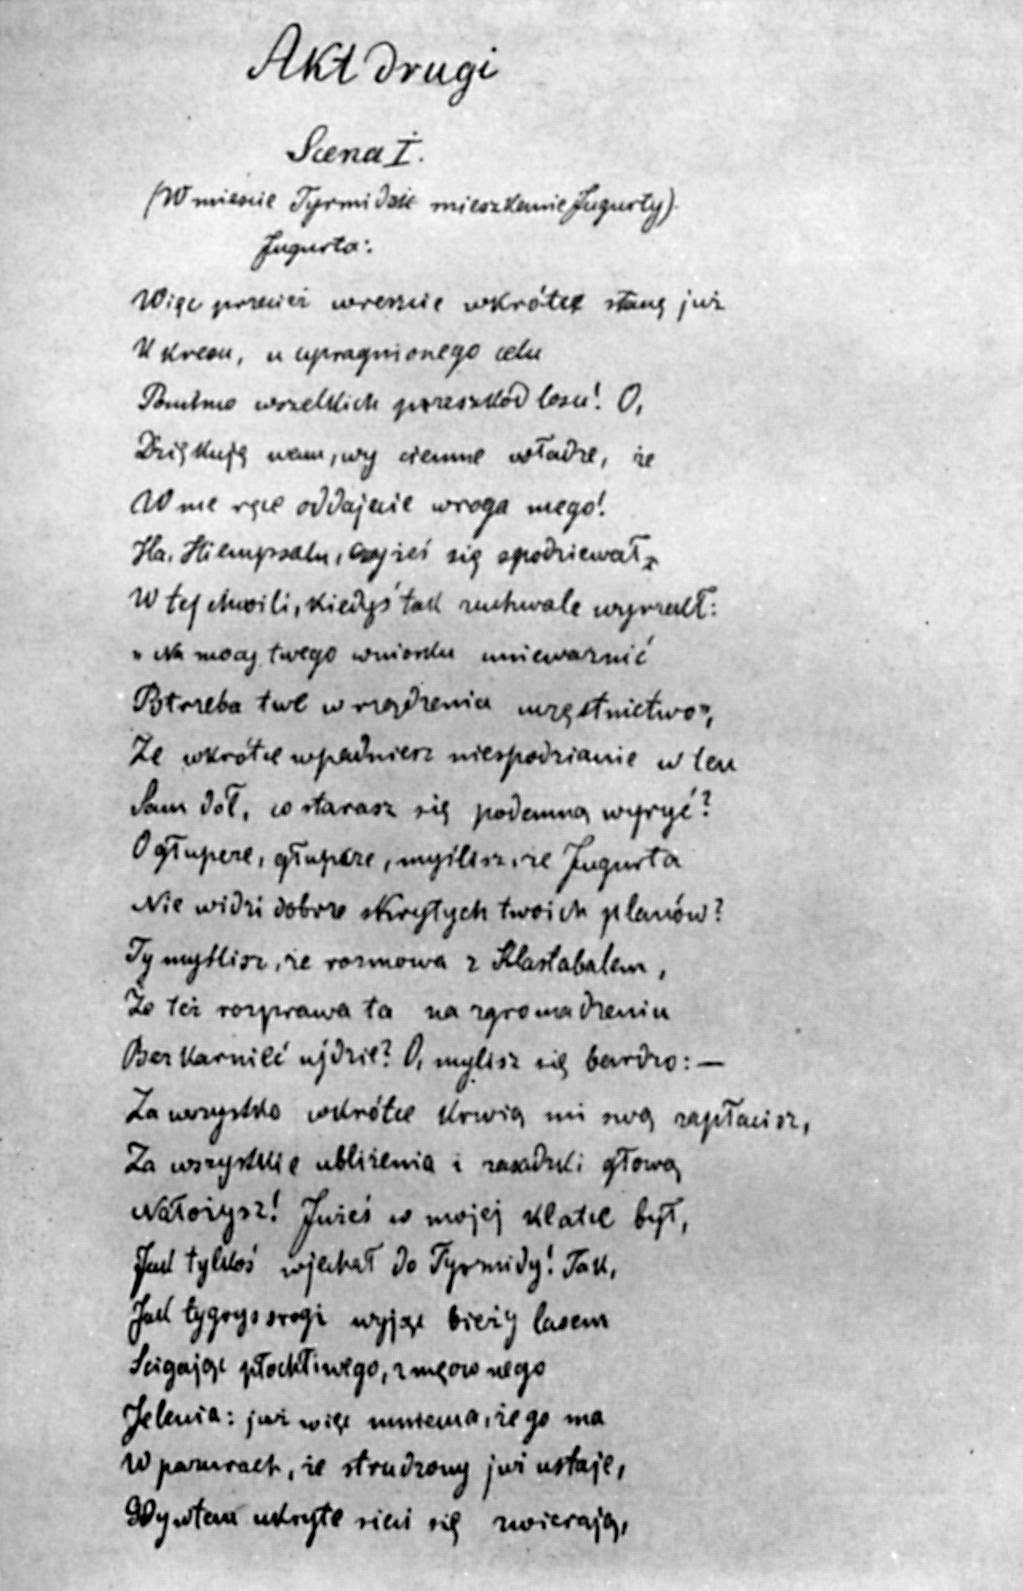 Akt drugi
Scena I.
(W mieście Tyrmidzie mieszkanie Jugurty).
Jugurta:
Więc przecież wreszcie wkrótce stanę już
U kresu, u upragnionego celu
Pomimo wszelkich przeszkód losu! O,
Dziękuję wam, wy ciemne władze, że
W me ręce oddajecie wroga mego!
Ha, Hiempsalu, czyżeś się spodziewał,
W tej chwili, kiedyś tak zuchwale wyrzekł:
"Na mocy twego wniosku unieważnić
Potrzeba twe wrządzenia urzęstnictwo",
Że wkrótce wpadniesz niespodzianie w ten
Sam dół, co starasz się podemną wyryć?
O głupcze, głupcze, myślisz, że Jugurta
Nie widzi dobrze skrytych twoich planów?
Ty myślisz, że rozmowa z Klastabalem,
Że też rozprawa ta na zgromadzeniu
Bezkarnież ujdzie? O, mylisz się bardzo: —
Za wszystko wkrótce krwią mi swą zapłacisz,
Za wszystkie ubliżenia i zasadzki głową
Nałożysz! Jużeś w mojej klatce był,
Jak tylkoś wjechał do Tyrmidy! Tak,
Jak tygrys srogi wyjąc bieży lasem
Ścigając płochliwego, zmęczonego
Jelenia: już więc mniema, że go ma
W pazurach, że strudzony już ustaje,
Gdy wtem ukryte sieci się zwierają,